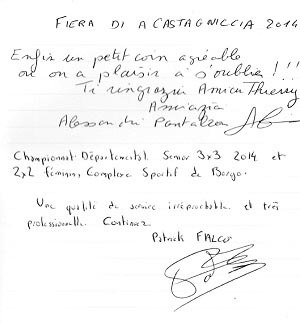 FIERA DI A CASTAGNICCIA 2014
Enfin un petit coin agréable
où on a plaisir à s'oublier !!!
Ti ringrazia Amicu Thierry
Alessandri Pantalon
Championnat Départemental Senior 3x3 2014 et
2x2 féminin, Complexe Sportif de Borgo.
Une qualité de service irréprochable et très
professionnelle. Continuez
Patrick FALCO